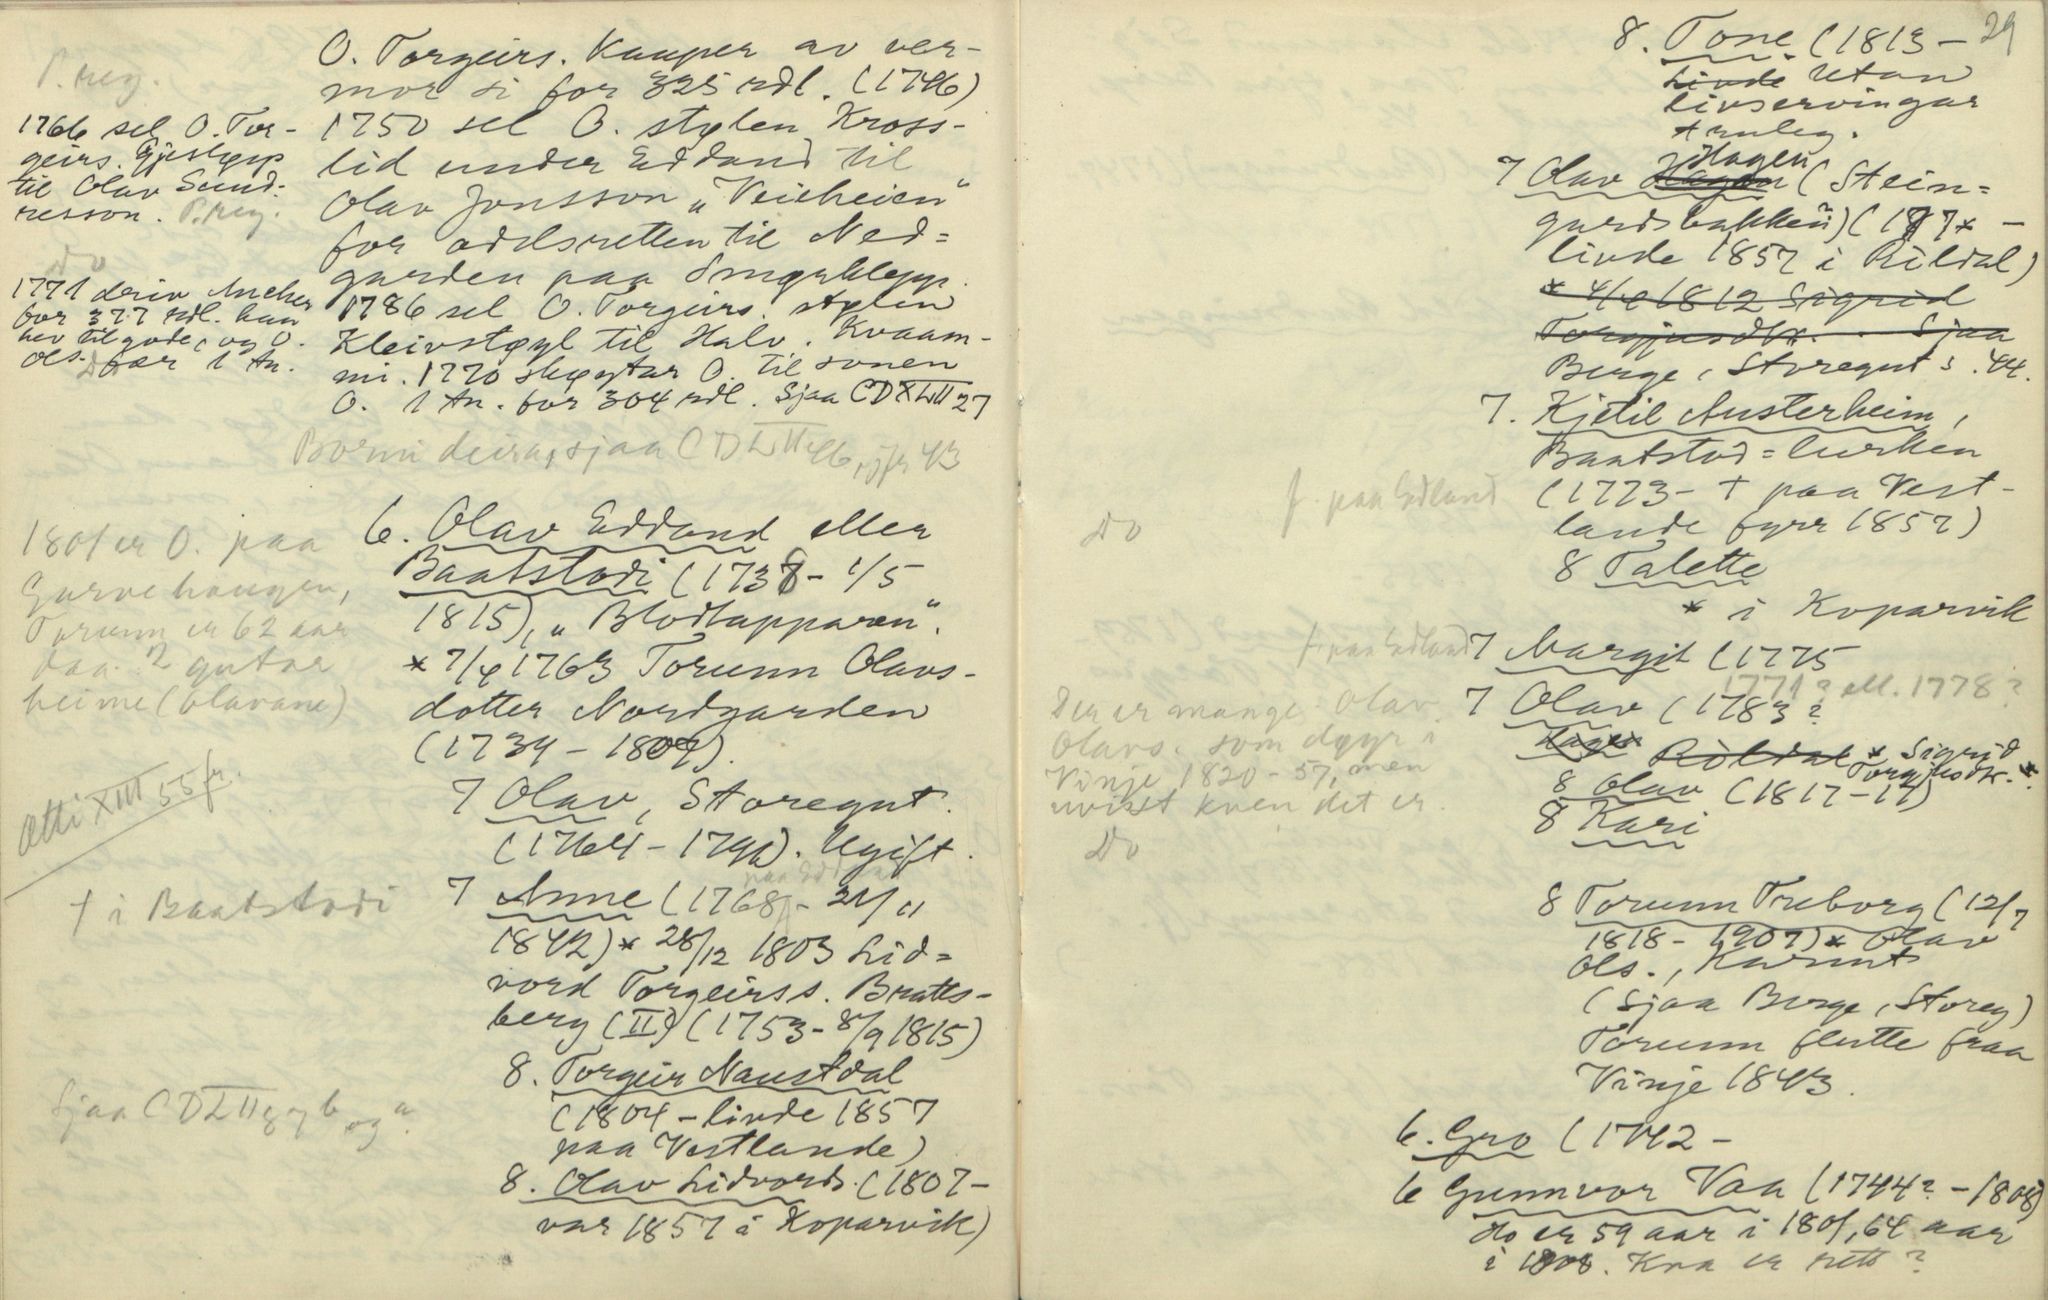 P. reg.
1766 sel O. Tor-
geirs. Gjeslepp
til Olav Sund-
resson. P. reg.
Do
1771 skriv Ancher
for 377 rdl. han
hev tilgode, og O.
Ols. fær 1 An.
Do
O. Torgeirs. kauper av ver-
mor si for 325 rdl. (1746)
1750 sel O. støylen Kross-
lid under Eddand til
Olav Jonsson „Veiheien"
for odelsretten til Ned-
garden paa Smørklepp.
1786 sel O. Torgeirs. støylen
Kleivstøyl til Halv. Kvaam-
mi. 1770 skøytar O. til sonen
O. 1 An. for 304 rdl. Sjaa CDXLII 27
Borni deira, sjaa CDLII 46, jfr 43
1801 er O. paa
Garvehaugen,
Torunn er 62 aar
daa. 2 gutar
heime (Olavane)
Ætti XIII 55 fr.
† i Baatstodi
Sjaa CDLII 87 b og a.
6. Olav Eddand eller
Baatstodi (1738 - 1/5
1815), „Blodtapparen".
* 7/4 1763 Torunn Olavs-
dotter Nordgarden
(1739 - 1809).
7 Olav, Storegut.
(1764 - 1790). Ugift.
7 Anne (1768 - 21/11
1842) * 28/12 1803 Lid-
vord Torgeirss. Bratts-
berg (II) (1753 - 8/9 1815)
8. Torgeir Naustdal
(1804 - livde 1857
paa Vestlande)
8. Olav Lidvords. (1807 -
var 1857 i Koparvik)
29
8. Tone (1813 -
Livde utan
livservingar
truleg.
7 Olav Hagen (Stein-
gardsbakken) (177* -
livde 1857 i Röldal)
* 4/4 1812 Sigrid
Torgjusdtr. Sjaa
Berge, Storegut s. 44.
7. Kjetil Austerheim,
Baatstod-lurken
f. paa Edland
(1773 - † paa Vest-
Do
lande fyrr 1857)
8 Talette
* i Koparvik
f. paa Edland
7 Margit (1775
1771? ell. 1778?
7 Olav (1783?
Hagen Röldal * Sigrid
Torgjusdtr.*
Der er mange Olav
Olavs. som døyr i
Vinje 1820 - 57, men
uvisst kven det er.
Do
8 Olav (1817 - 17)
8 Kari
8 Torunn Treborg (12/7
1818 - 1907) * Olav
Ols., Karmut
(Sjaa Berge, Storeg)
Torunn flutte fraa
Vinje 1843.
6. Gro (1742 -
6 Gunnvor Vaa (1744? - 1808)
Ho er 59 aar i 1801, 64 aar
i 1808. Kva er rett?